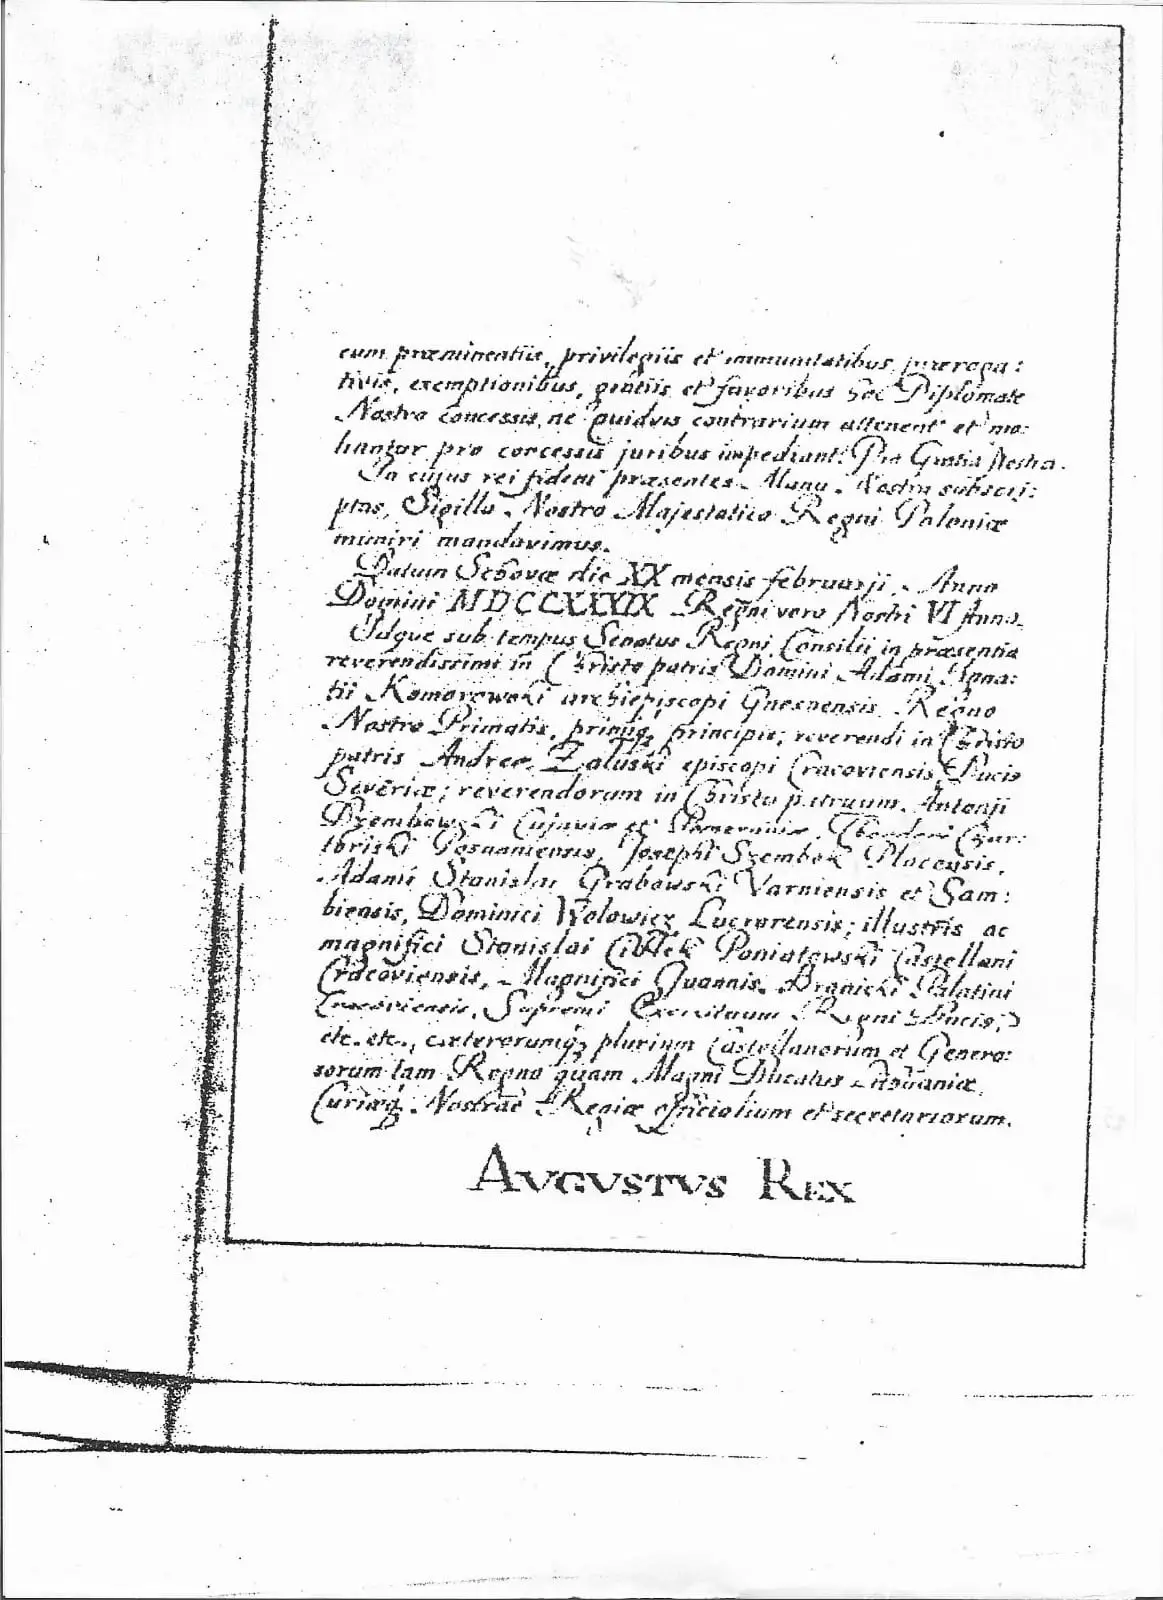 cum præminentiis, privilegiis et immunitatibus, præroga:
tivis, exemptionibus, gratiis et favoribus hoc Diplomate
Nostro concessis, ne quidvis contrarium attenent et mo:
liantur pro concessis juribus impediant. Pro Gratia Nostra.
In cujus rei fidem præsentes Manu Nostra subscri:
ptas, Sigillo Nostro Majestatico Regni Poloniæ
muniri mandavimus.
Datum die XX mensis februarji Anno
Domini MDCCXXXIX Regni vero Nostri VI Anno.
Idque sub tempus Senatus Regni Consilii in præsentia
reverendissimi in Christo patris Domini Adami Igna:
tii Komorowski archiepiscopi Gnesnensis Regno
Nostro Primatis, primiq; principis; reverendi in Christo
patris Andreæ Zaluski episcopi Cracoviensis, Ducis
Severiæ; reverendorum in Christo patruum Antonji
Dzembowski Cujaviæ et Pomeraniæ, Theodori Czar:
toriski Posnaniensis, Josephi Szembek Plocensis,
Adami Stanislai Grabowski Varniensis et Sam:
biensis, Dominici Wolowicz Luceorensis; illustris ac
magnifici Stanislai Ciołek Poniatowski Castellani
Cracoviensis, Magnifici Joannis Branicki Palatini
Cracoviensis, Supremi Exercituum Regni Ducis;
etc. etc., cæterorumq; plurium Castellanorum et Genero:
sorum tam Regno quam Magni Ducatus Lithuaniæ,
Curiæq; Nostrae Regiæ officialium et secretariorum.
AVGVSTVS REX